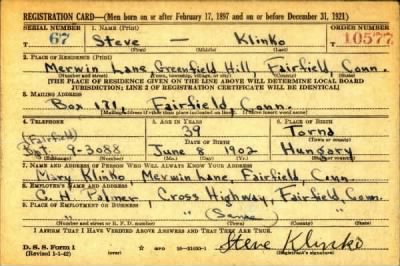 REGISTRATION CARD—(Men born on or after February 17, 1897 and on or before December 31, 1921)
SERIAL NUMBER
1. NAME (Print)
ORDER NUMBER
T 67
Steve — Klinko
10577
(First) (Middle) (Last)
2. PLACE OF RESIDENCE (Print)
Merwin Lane Greenfield Hill, Fairfield, Conn.
(Number and street) (Town, township, village, or city) (County) (State)
[THE PLACE OF RESIDENCE GIVEN ON THE LINE ABOVE WILL DETERMINE LOCAL BOARD
JURISDICTION; LINE 2 OF REGISTRATION CERTIFICATE WILL BE IDENTICAL]
3. MAILING ADDRESS
Box 171, Fairfield, Conn.
4. TELEPHONE
5. AGE IN YEARS
6. PLACE OF BIRTH
(Fairfield)
39
Torna
DATE OF BIRTH
(Town or county)
9-3088
June 8 1902
Hungary
(Exchange) (Number)
(Mo.) (Day) (Yr.)
(State or country)
7. NAME AND ADDRESS OF PERSON WHO WILL ALWAYS KNOW YOUR ADDRESS
Mary Klinko Merwin Lane, Fairfield, Conn.
8. EMPLOYER'S NAME AND ADDRESS
G. H. Palmer, Cross Highway, Fairfield, Conn.
9. PLACE OF EMPLOYMENT OR BUSINESS
(Same)
(Number and street or R. F. D. number) (Town) (County) (State)
I AFFIRM THAT I HAVE VERIFIED ABOVE ANSWERS AND THAT THEY ARE TRUE.
D. S. S. Form 1
(Revised 1-1-42)
GPO 16—21630-1
Steve Klinko
(Registrant's signature)